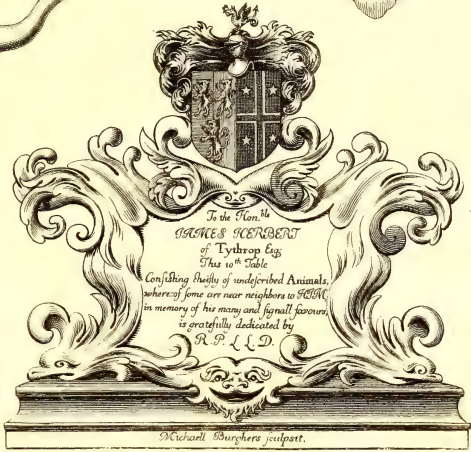 To the Hon.ble
JAMES HERBERT
of Tythrop Esq;
This 10th Table
Consisting cheifly of undescribed Animals,
where:of some are near neighbors to HIM,
in memory of his many and signall favours,
is gratefully dedicated by
R. P. L L. D.
Michaell Burghers sculpsit.